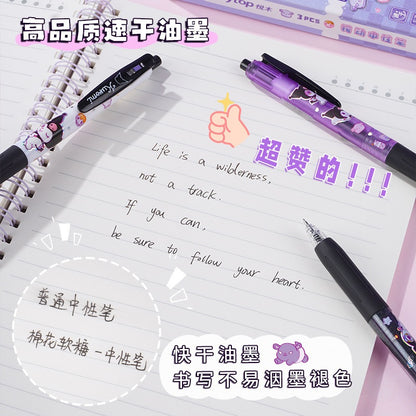 高品质速干油墨
top 悦木
3PCS
按动中性笔
Kuromi
超赞的!!!
Life is a wilderness,
not a track.
If you can,
be sure to follow your heart.
普通中性笔
棉花软糖-中性笔
快干油墨
书写不易洇墨褪色